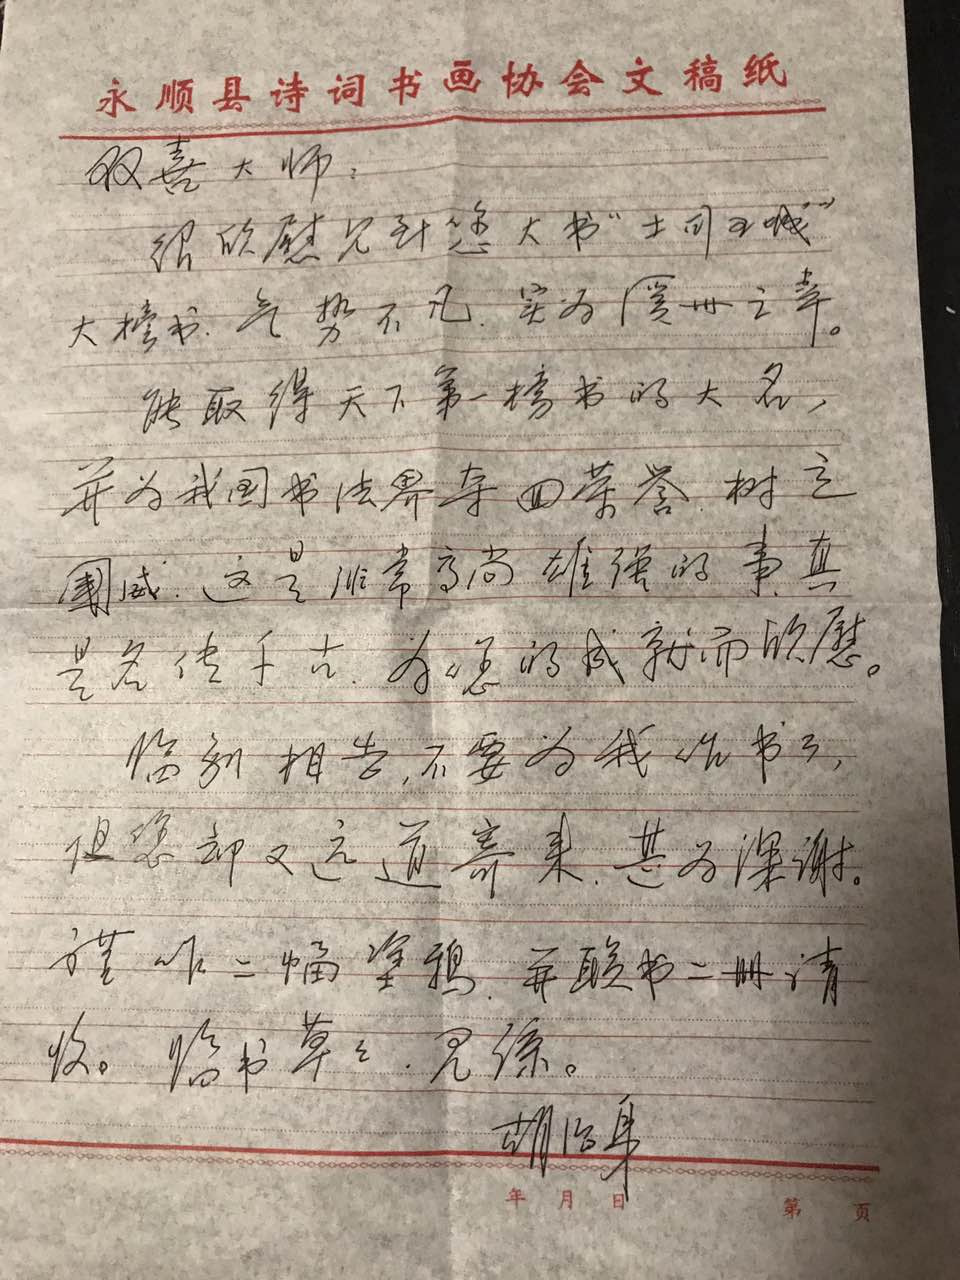 永顺县诗词书画协会文稿纸
双喜大师：
很欣慰见到您大书“土司王城”
大榜书．气势不凡．实为溪州之幸。
能取得天下第一榜书的大名，
并为我国书法界夺回荣誉．树立
國威．这是非常高尚雄强的事．真
是名传千古．为您的成就而欣慰。
临别相告，不要为我作书了，
但您却又远道寄来．甚为深谢。
谨作二幅塗鸦．并联书二册请
收。临书草々．见谅。
胡
年 月 日
第 页